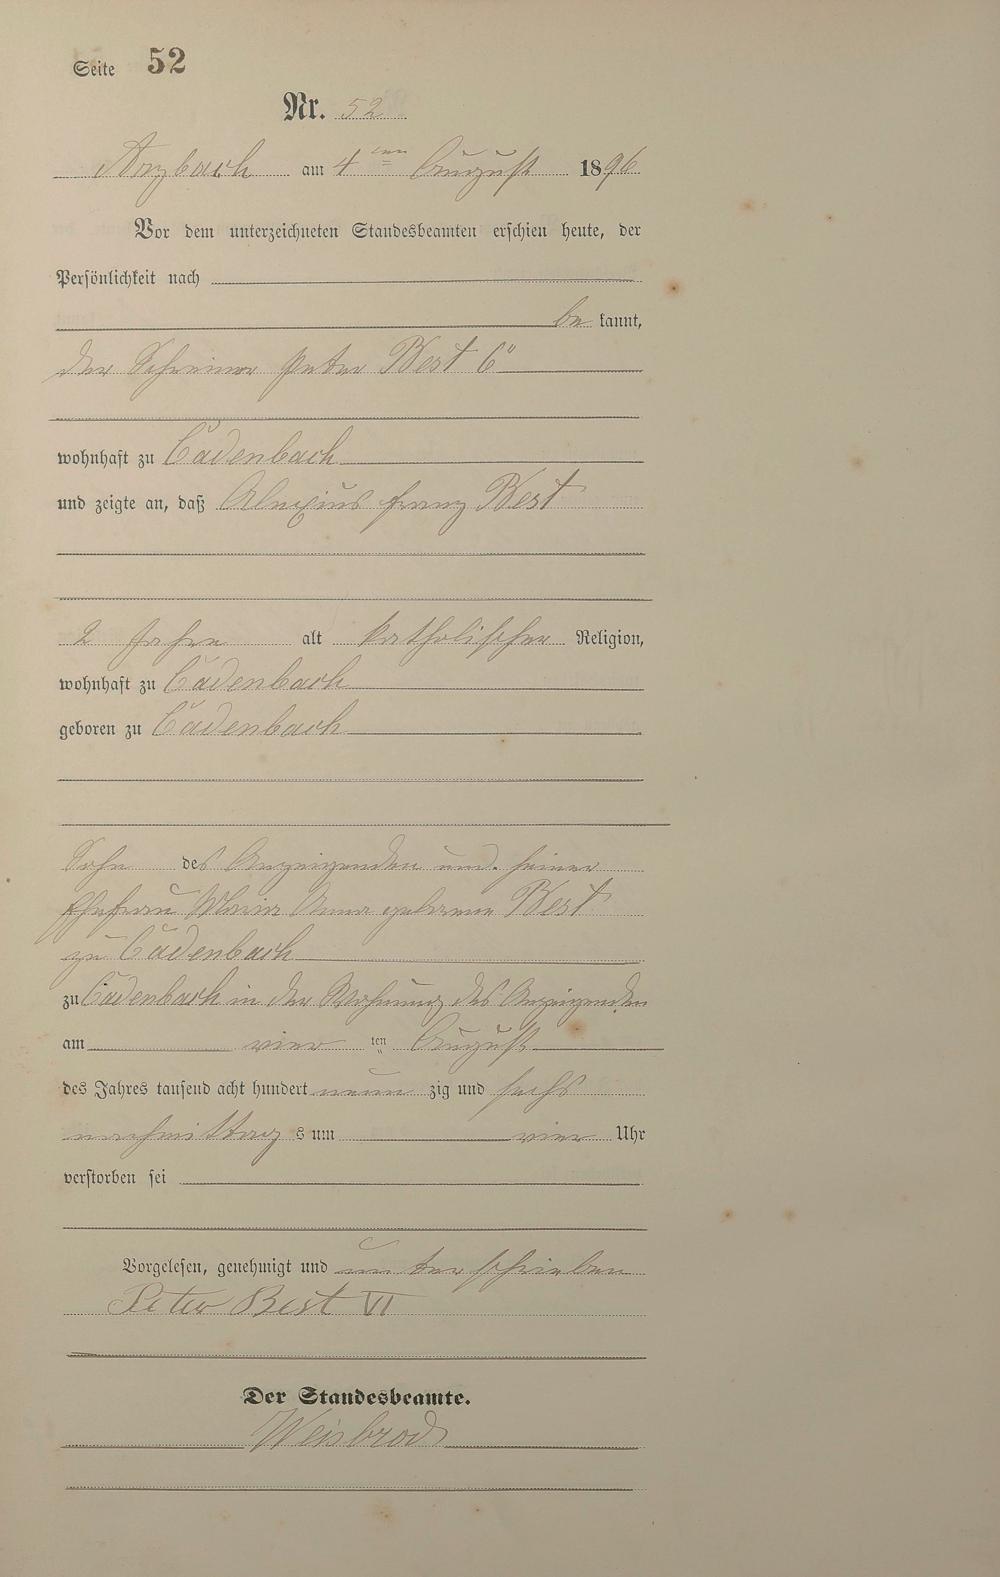 Seite 52
Nr. 52
Arzbach am 4ten August 1896
Vor dem unterzeichneten Standesbeamten erschien heute, der
Persönlichkeit nach
be kannt,
der Schreiner Peter Best 6r
wohnhaft zu Cadenbach
und zeigte an, daß Alexius Franz Best
2 Jahre alt katholischer Religion,
wohnhaft zu Cadenbach
geboren zu Cadenbach
Sohn des Anzeigenden und seiner
Ehefrau Maria Anna geborene Best
zu Cadenbach
zu Cadenbach in der Wohnung des Anzeigenden
am vier ten August
des Jahres tausend acht hundert neun zig und sechs
nachmittag s um vier Uhr
verstorben sei
Vorgelesen, genehmigt und unterschrieben
Peter Best VI
Der Standesbeamte.
Weisbrod